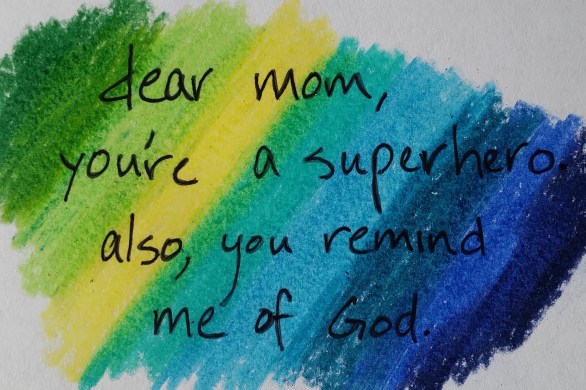 dear mom,
you're a superhero.
also, you remind
me of God.